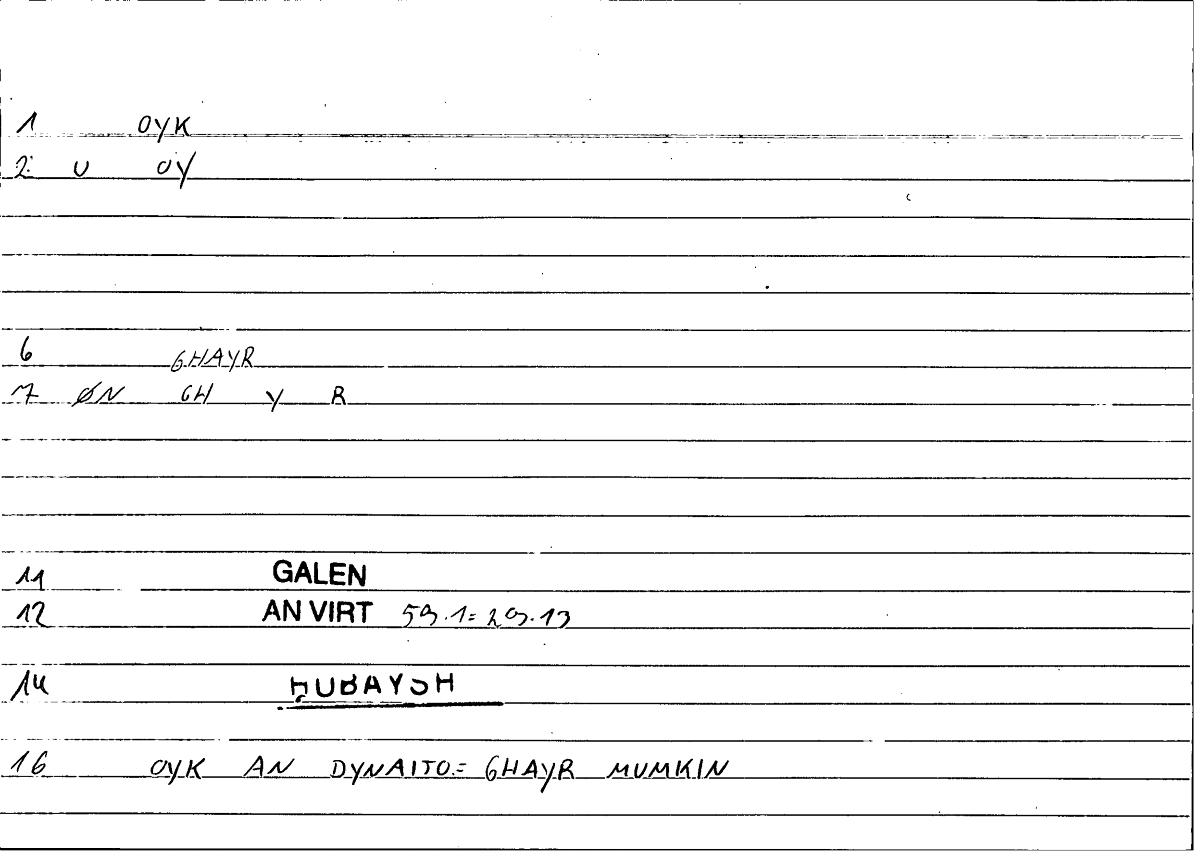 1 OYK
2 U OY
6 GHAYR
7 ØN GH Y R
11 GALEN
12 AN VIRT 59.1=29.13
14 ḤUBAYSH
16 OYK AN DYNAITO= GHAYR MUMKIN